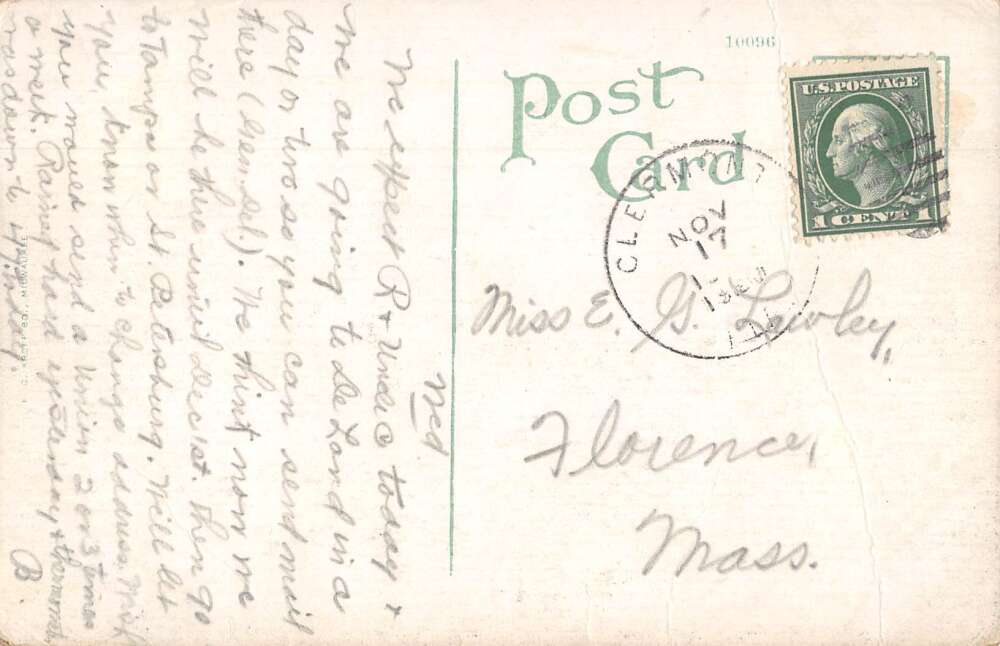 10096
Post
Card
U.S. POSTAGE
1 CENT 1
CLERMONT
NOV
17
FLA
Miss E. G. Lawley,
Florence,
Mass.
Wed
We expect R + Uncle C today +
we are going to De Land in a
day or two so you can send mail
there (Gen. Del.). We think now we
will be there until Dec. 1st. then go
to Tampa or St. Petersburg. Will let
you know when to change address. Wish
you would send a Union 2 or 3 times
a week. Rained hard yesterday + thermom.
was down to 47° today.
B